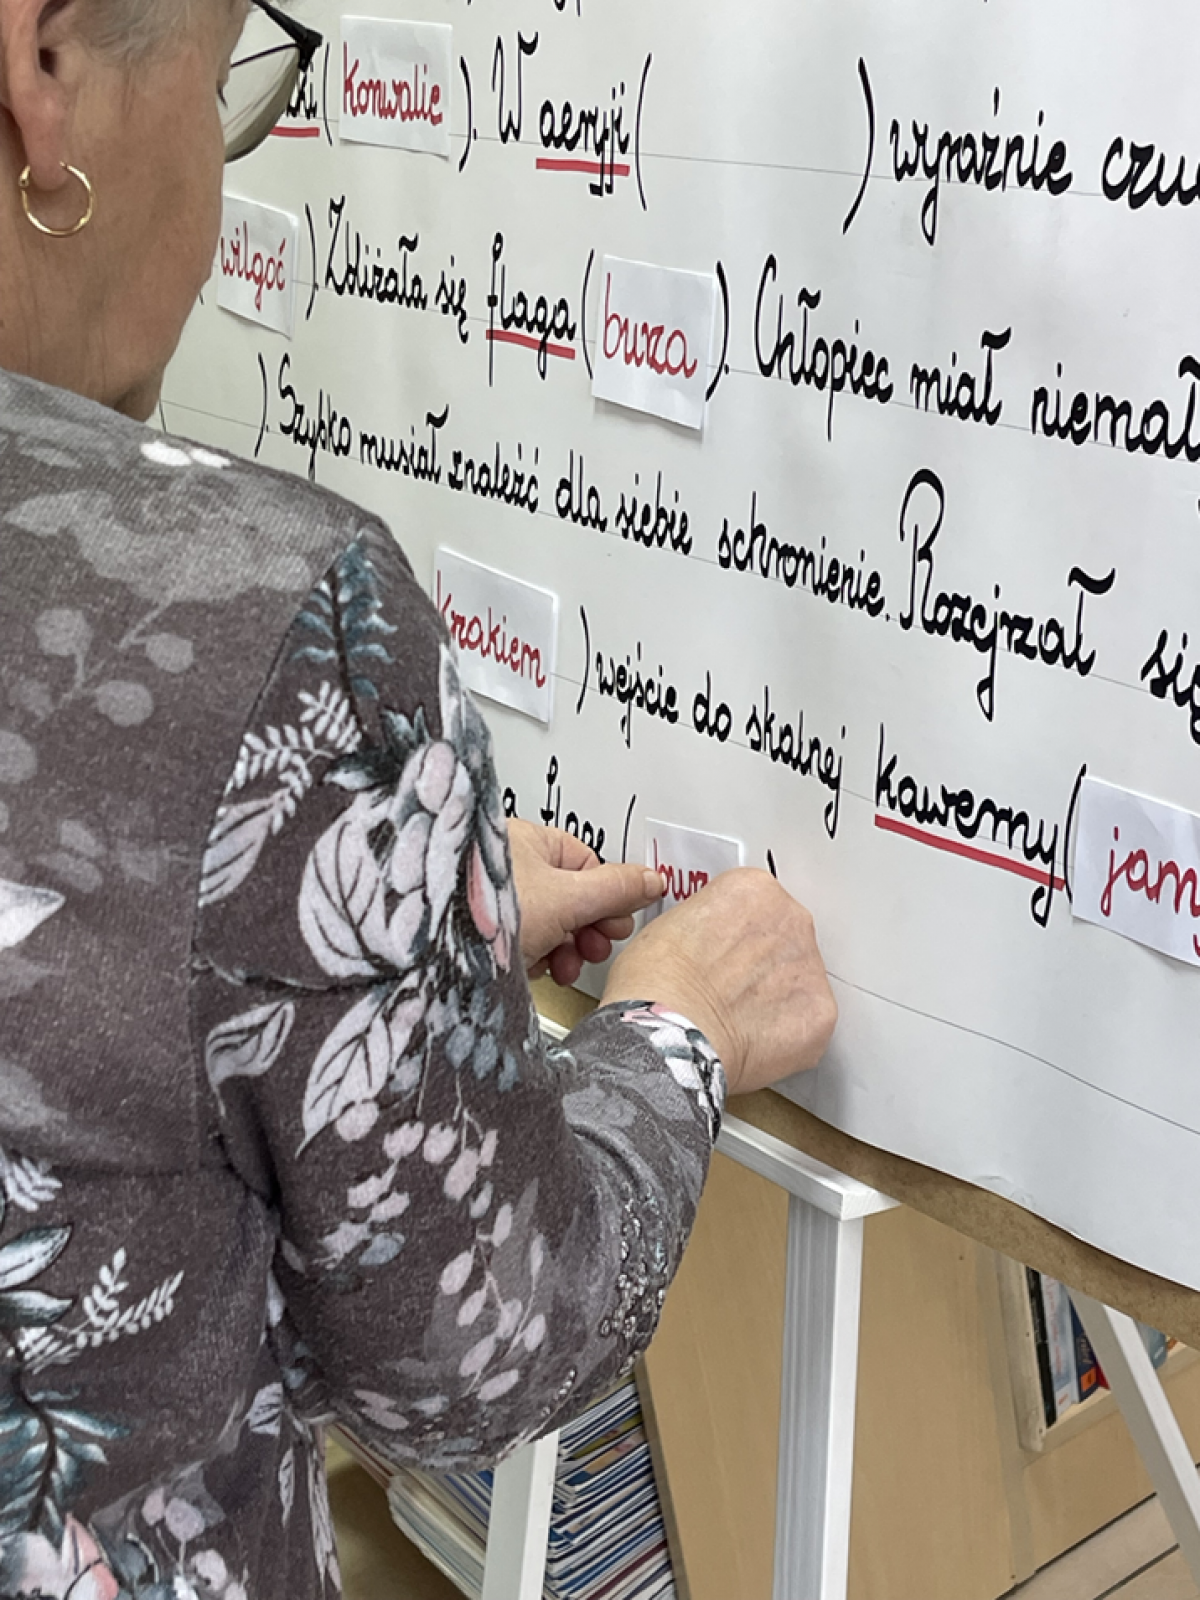 (konwalie). W aeryji ( ) wyraźnie
wilgoć). Zbliżała się flaga (burza). Chłopiec miał
). Szybko musiał znaleźć dla siebie schronienie. Rozejrzał się
krakiem ) wejście do skalnej kawerny (jam
flagę (